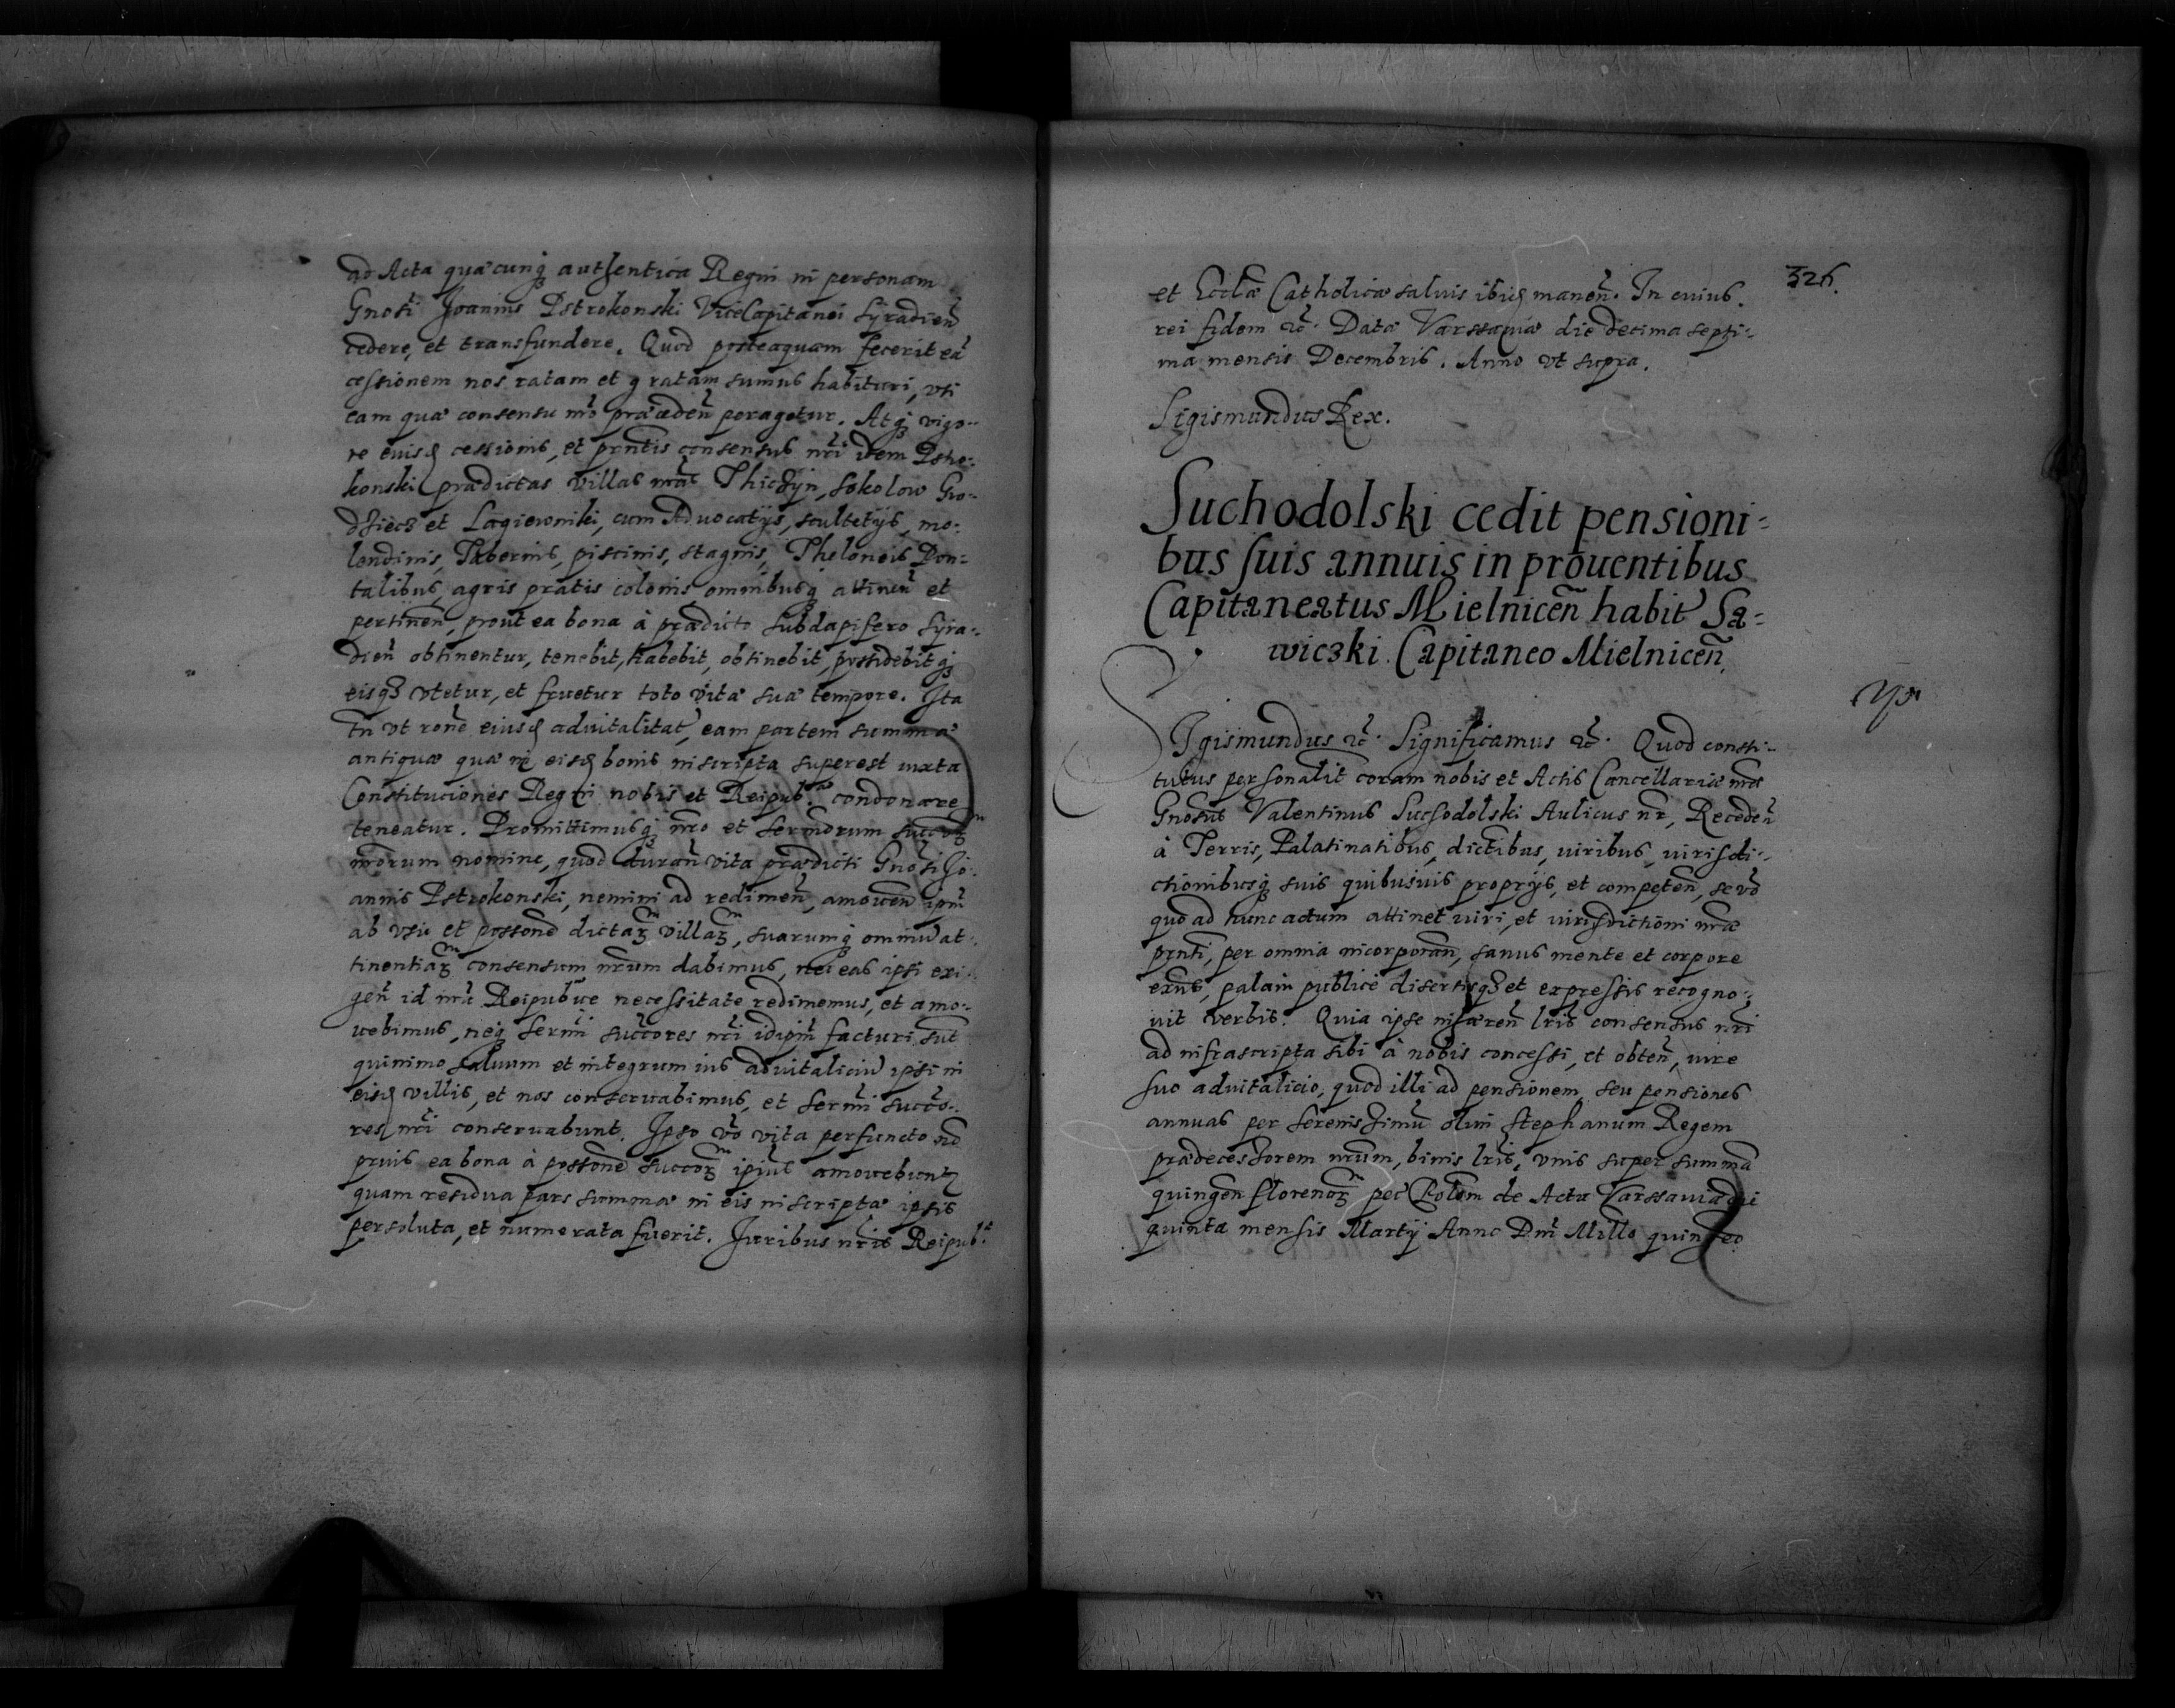 ad Acta quæcunq₃ authentica Regni in personam
Gnosi Joannis Pstrokonski ViceCapitanei Syradien̄
cedere, et transfundere. Quod posteaquam fecerit eā
cessionem nos ratam et gratam sumus habituri, vti
eam quæ consensu nr̄o præceden̄ peragetur. Atq₃ vigo-
re eiusd cessionis, et pn̄tis consensus nr̄i idem Pstro-
konski prædictas villas nr̄as Thicżyn, Sokolow Gro-
dziecz et Lagiewniki, cum Aduocatijs, scultetijs, mo-
lendinis, Tabernis, piscinis, stagnis, Theloneis Pon-
talibus, agris pratis colonis omnibusq₃ attinen̄ et
pertinen̄, prout ea bona à prædicto Subdapifero Syra-
dien̄ obtinentur, tenebit, habebit, obtinebit, possidebitq₃
eisq₃ vtetur, et fruetur toto vitæ suæ tempore. Ita
tn̄ vt ron̄e eiusd aduitalitat̄, eam partem summæ
antiquæ quæ in eisd bonis inscripta superest iuxta
Constitutiones Regni nobis et Reipub.cæ condonare
teneatur. Promittimusq₃ nr̄o et Sermorum succor̄
nr̄orum nomine, quod duran̄ vita prædicti Gnosi Jo-
annis Pstrokonski, nemini ad redimen̄, amouen̄ ipm̄
ab vsu et posson̄e dictar̄ villar̄, suarumq₃ omniū at-
tinentiar̄ consensum nr̄um dabimus, nec eas ipsi exi-
gen̄ id nr̄a Reipublicæ necessitate redimemus, et amo-
uebimus, neq₃ Sermi succores nr̄i idipm̄ facturi sūt
quinimo saluum et integrum ius aduitaliciū ipsi in
eisd villis, et nos conseruabimus, et Sermi succo-
res nr̄i conseruabunt. Ipso vo vita perfuncto nō
prius ea bona à posson̄e succor̄ ipius amouebunt̄
quam residua pars summæ in eis inscriptæ ipsis
persoluta, et numerata fuerit. Juribus nr̄is Reipub.
326.
et Ecclæ Catholicæ saluis ibid manen̄. In cuius
rei fidem &c. Data Varssauiæ die decima septi-
ma mensis Decembris. Anno vt supra.
Sigismundus Rex.
Suchodolski cedit pensioni-
bus suis annuis in prouentibus
Capitaneatus Mielnicen̄ habit̄ Sa-
wiczki Capitaneo Mielnicen̄
SIgismundus &c. Significamus &c. Quod consti-
tutus personalit̄ coram nobis et Actis Cancellariæ nr̄æ
Gnosus Valentinus Suchodolski Aulicus nr̄, Receden̄
à Terris, Palatinatibus, dictibus, iuribus, iurisdi-
ctionibusq₃ suis quibusuis proprijs, et competen̄, se vo
quo ad hunc actum attinet iuri, et iurisdictioni nr̄æ
pn̄ti, per omnia incorporan̄, sanus mente et corpore
exn̄s, palam publicè disertisq₃ et expressis recogno-
uit verbis. Quia ipse inhæren̄ lr̄is consensus nr̄i
ad infrascripta sibi à nobis concessi, et obten̄, iure
suo aduitalicio, quod illi ad pensionem, seu pensiones
annuas per Serenissimū olim Stephanum Regem
prædecessorem nr̄um, binis lr̄is, vnis super summā
quingen̄ florenor̄ pec̄ Polon̄ de Acta Varssauiæ die
quinta mensis Martij Anno Dn̄i Millo quin eo